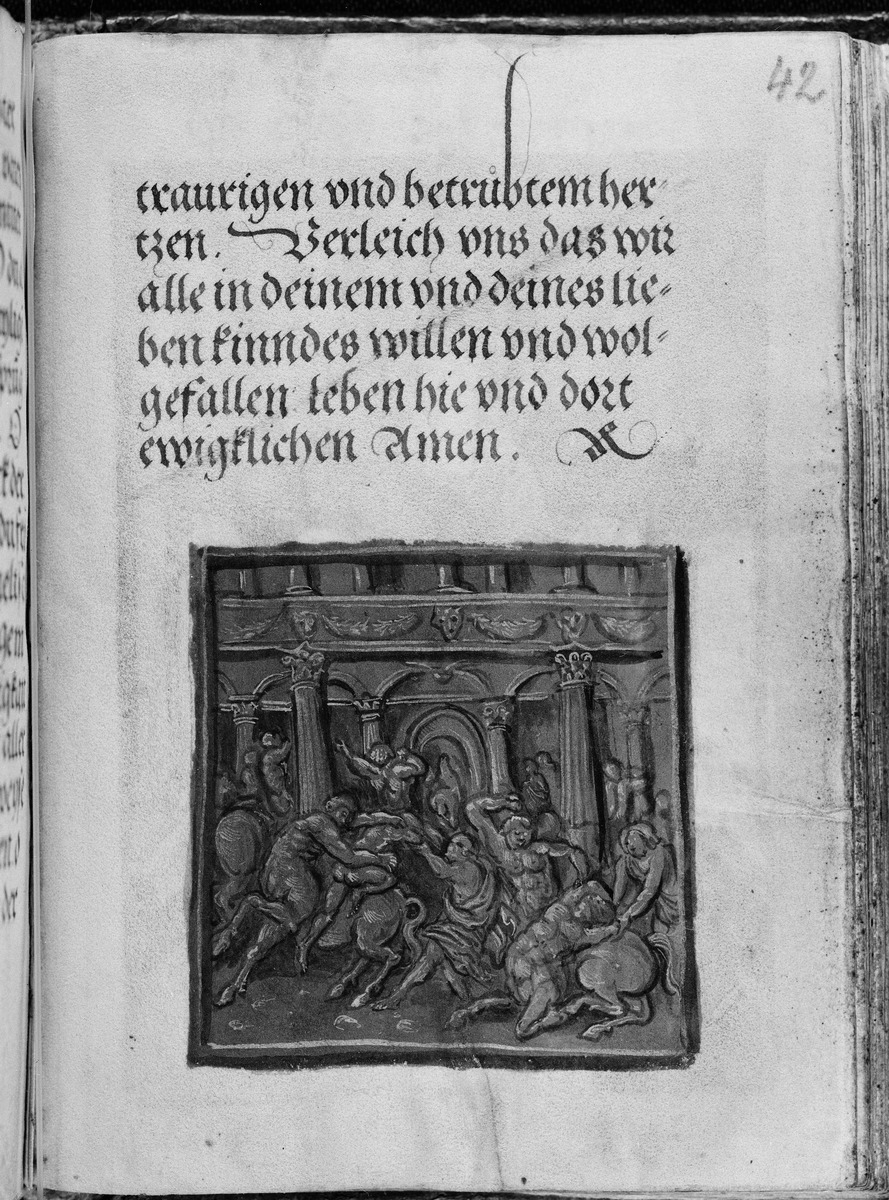 42
traurigen vnd betrůbtem her-
tzen. Verleich vns das wir
alle in deinem vnd deines lie-
ben kinndes willen vnd wol-
gefallen leben hie vnd dort
ewigklichen Amen.